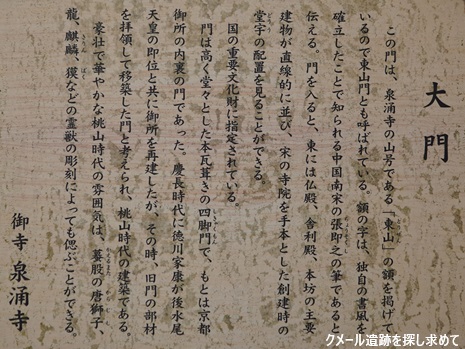 大門
この門は、泉涌寺の山号である「東山」の額を掲げて
いるので東山門とも呼ばれている。額の字は、独自の書風を
確立したことで知られる中国南宋の張即之の筆であると
伝える。門を入ると、東には仏殿、舎利殿、本坊の主要
建物が直線的に並び、宋の寺院を手本とした創建時の
堂宇の配置を見ることができる。
国の重要文化財に指定されている。
門は高く堂々とした本瓦葺きの四脚門で、もとは京都
御所の内裏の門であった。慶長時代に徳川家康が後水尾
天皇の即位と共に御所を再建したが、その時、旧門の部材
を拝領して移築した門と考えられ、桃山時代の建築である。
豪壮で華やかな桃山時代の雰囲気は、蟇股の唐獅子、
龍、麒麟、獏などの霊獣の彫刻によっても偲ぶことができる。
御寺 泉涌寺
クメール遺跡を探し求めて